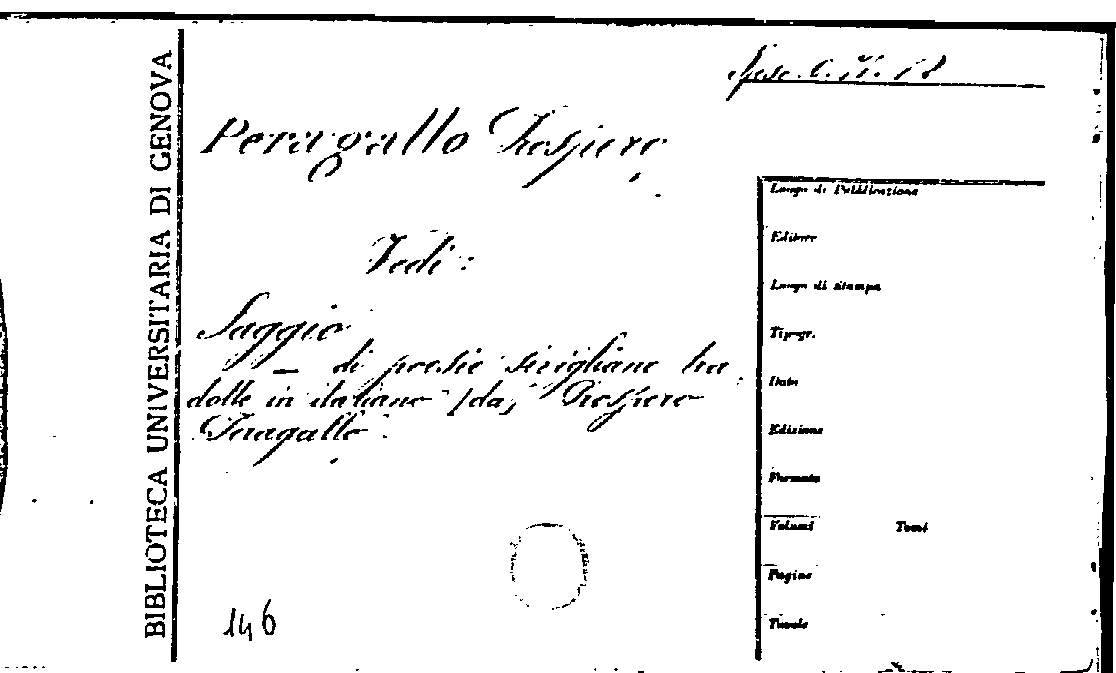 BIBLIOTECA UNIVERSITARIA DI GENOVA
Misc. C. II. 18
Peragallo Prospero
Vedi:
Saggio
— di poesie sivigliane tra
dotte in italiano (da) Prospero
Peragallo.
146
Luogo di Pubblicazione
Editore
Luogo di stampa
Tipogr.
Data
Edizione
Formato
Volumi Tomi
Pagine
Tavole